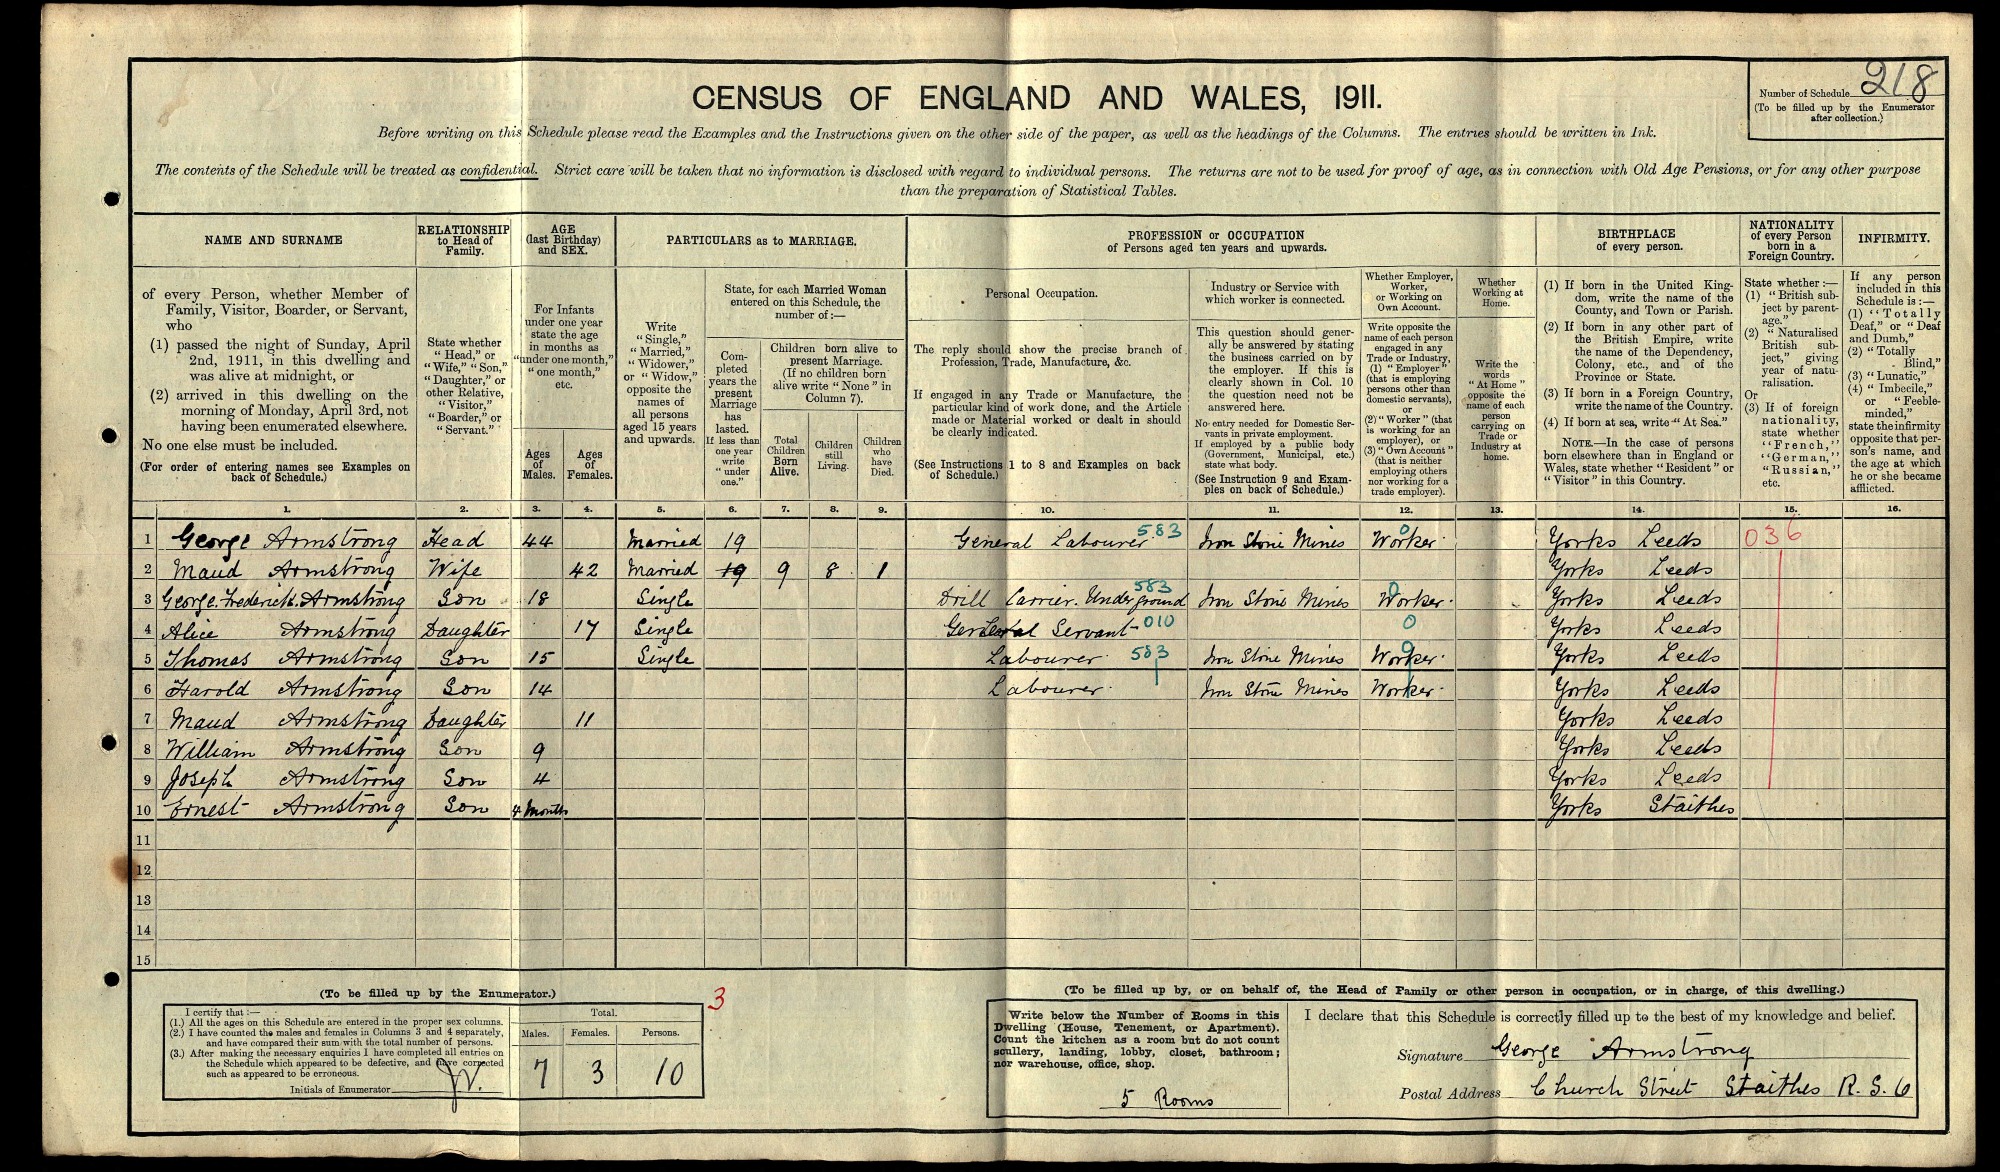 CENSUS OF ENGLAND AND WALES, 1911.
Number of Schedule 218
(To be filled up by the Enumerator
after collection.)
Before writing on this Schedule please read the Examples and the Instructions given on the other side of the paper, as well as the headings of the Columns. The entries should be written in Ink.
The contents of the Schedule will be treated as confidential. Strict care will be taken that no information is disclosed with regard to individual persons. The returns are not to be used for proof of age, as in connection with Old Age Pensions, or for any other purpose
than the preparation of Statistical Tables.
NAME AND SURNAME
of every Person, whether Member of
Family, Visitor, Boarder, or Servant,
who
(1) passed the night of Sunday, April
2nd, 1911, in this dwelling and
was alive at midnight, or
(2) arrived in this dwelling on the
morning of Monday, April 3rd, not
having been enumerated elsewhere.
No one else must be included.
(For order of entering names see Examples on
back of Schedule.)
RELATIONSHIP
to Head of
Family.
State whether
"Head," or
"Wife," "Son,"
"Daughter," or
other Relative,
"Visitor,"
"Boarder," or
"Servant."
AGE
(last Birthday)
and SEX.
For Infants
under one year
state the age
in months as
"under one month,"
"one month,"
etc.
Ages
of
Males.
Ages
of
Females.
PARTICULARS as to MARRIAGE.
Write
"Single,"
"Married,"
"Widower,"
or "Widow,"
opposite the
names of
all persons
aged 15 years
and upwards.
State, for each Married Woman
entered on this Schedule, the
number of:—
Com-
pleted
years the
present
Marriage
has
lasted.
If less than
one year
write
"under
one."
Children born alive to
present Marriage.
(If no children born
alive write "None" in
Column 7).
Total
Children
Born
Alive.
Children
still
Living.
Children
who
have
Died.
PROFESSION or OCCUPATION
of Persons aged ten years and upwards.
Personal Occupation.
The reply should show the precise branch of
Profession, Trade, Manufacture, &c.
If engaged in any Trade or Manufacture, the
particular kind of work done, and the Article
made or Material worked or dealt in should
be clearly indicated.
(See Instructions 1 to 8 and Examples on back
of Schedule.)
Industry or Service with
which worker is connected.
This question should gener-
ally be answered by stating
the business carried on by
the employer. If this is
clearly shown in Col. 10
the question need not be
answered here.
No entry needed for Domestic Ser-
vants in private employment.
If employed by a public body
(Government, Municipal, etc.)
state what body.
(See Instruction 9 and Exam-
ples on back of Schedule.)
Whether Employer,
Worker,
or Working on
Own Account.
Write opposite the
name of each person
engaged in any
Trade or Industry,
(1) "Employer"
(that is employing
persons other than
domestic servants),
or
(2) "Worker" (that
is working for an
employer), or
(3) "Own Account"
(that is neither
employing others
nor working for a
trade employer).
Whether
Working at
Home.
Write the
words
"At Home"
opposite the
name of each
person
carrying on
Trade or
Industry at
home.
BIRTHPLACE
of every person.
(1) If born in the United King-
dom, write the name of the
County, and Town or Parish.
(2) If born in any other part of
the British Empire, write
the name of the Dependency,
Colony, etc., and of the
Province or State.
(3) If born in a Foreign Country,
write the name of the Country.
(4) If born at sea, write "At Sea."
NOTE.—In the case of persons
born elsewhere than in England or
Wales, state whether "Resident" or
"Visitor" in this Country.
NATIONALITY
of every Person
born in a
Foreign Country.
State whether:—
(1) "British sub-
ject by parent-
age."
(2) "Naturalised
British sub-
ject," giving
year of natu-
ralisation.
Or
(3) If of foreign
nationality,
state whether
"French,"
"German,"
"Russian,"
etc.
INFIRMITY.
If any person
included in this
Schedule is:—
(1) "Totally
Deaf," or "Deaf
and Dumb,"
(2) "Totally
Blind,"
(3) "Lunatic,"
(4) "Imbecile,"
or "Feeble-
minded,"
state the infirmity
opposite that per-
son's name, and
the age at which
he or she became
afflicted.
1. 2. 3. 4. 5. 6. 7. 8. 9. 10. 11. 12. 13. 14. 15. 16.
1 George Armstrong Head 44 Married 19 General Labourer 583 Iron Stone Mines Worker 0 Yorks Leeds 036
2 Maud Armstrong Wife 42 Married 19 9 8 1 Yorks Leeds
3 George. Frederick. Armstrong Son 18 Single Drill Carrier. Underground 583 Iron Stone Mines Worker 0 Yorks Leeds
4 Alice Armstrong Daughter 17 Single General Servant 010 0 Yorks Leeds
5 Thomas Armstrong Son 15 Single Labourer 583 Iron Stone Mines Worker Yorks Leeds
6 Harold Armstrong Son 14 Labourer Iron Stone Mines Worker Yorks Leeds
7 Maud Armstrong Daughter 11 Yorks Leeds
8 William Armstrong Son 9 Yorks Leeds
9 Joseph Armstrong Son 4 Yorks Leeds
10 Ernest Armstrong Son 4 Months Yorks Staithes
11
12
13
14
15
(To be filled up by the Enumerator.)
I certify that:—
(1.) All the ages on this Schedule are entered in the proper sex columns.
(2.) I have counted the males and females in Columns 3 and 4 separately,
and have compared their sum with the total number of persons.
(3.) After making the necessary enquiries I have completed all entries on
the Schedule which appeared to be defective, and have corrected
such as appeared to be erroneous.
Initials of Enumerator JV.
Total.
Males. Females. Persons.
7 3 10
3
(To be filled up by, or on behalf of, the Head of Family or other person in occupation, or in charge, of this dwelling.)
Write below the Number of Rooms in this
Dwelling (House, Tenement, or Apartment).
Count the kitchen as a room but do not count
scullery, landing, lobby, closet, bathroom;
nor warehouse, office, shop.
5 Rooms
I declare that this Schedule is correctly filled up to the best of my knowledge and belief.
Signature George Armstrong
Postal Address Church Street Staithes R. S. O